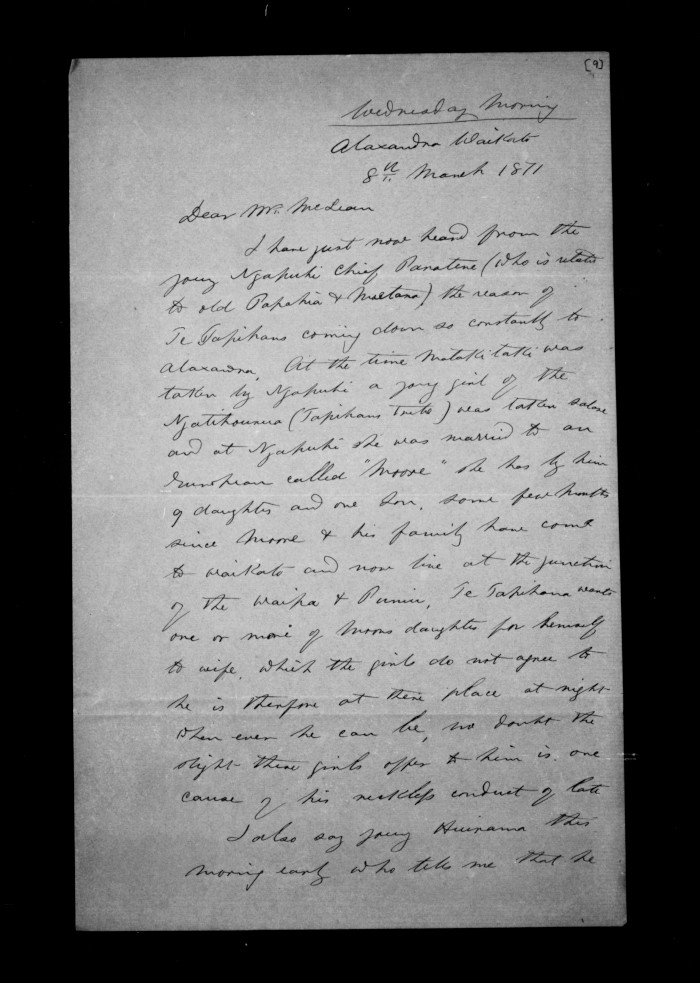 [9]
Wednesday Morning
Alaxandra Waikato
8th March 1871
Dear Mr. McLean
I have just now heard from the
young Ngapuhi Chief Paratene (who is related
to old Papahia & Moetara) the reason of
Te Tapihans coming down so constantly to
Alaxandra. At the time Matakitaki was
taken by Ngapuhi a young girl of the
Ngatihourua (Tapihans Tribe) was taken
and at Ngapuhi she was married to an
European called "Moore" she has by him
9 daughters and one son, some few months
since Moore & his family have come
to Waikato and now live at the junction
of the Waipa & Puniu, Te Tapihana wants
one or more of Moors daughters for himself
to wife, which the girls do not agree to
he is therefore at there place at night
when ever he can be, no doubt the
slight these girls offer to him is one
cause of his reckless conduct of late
I also say young Huirama this
morning early who tells me that he